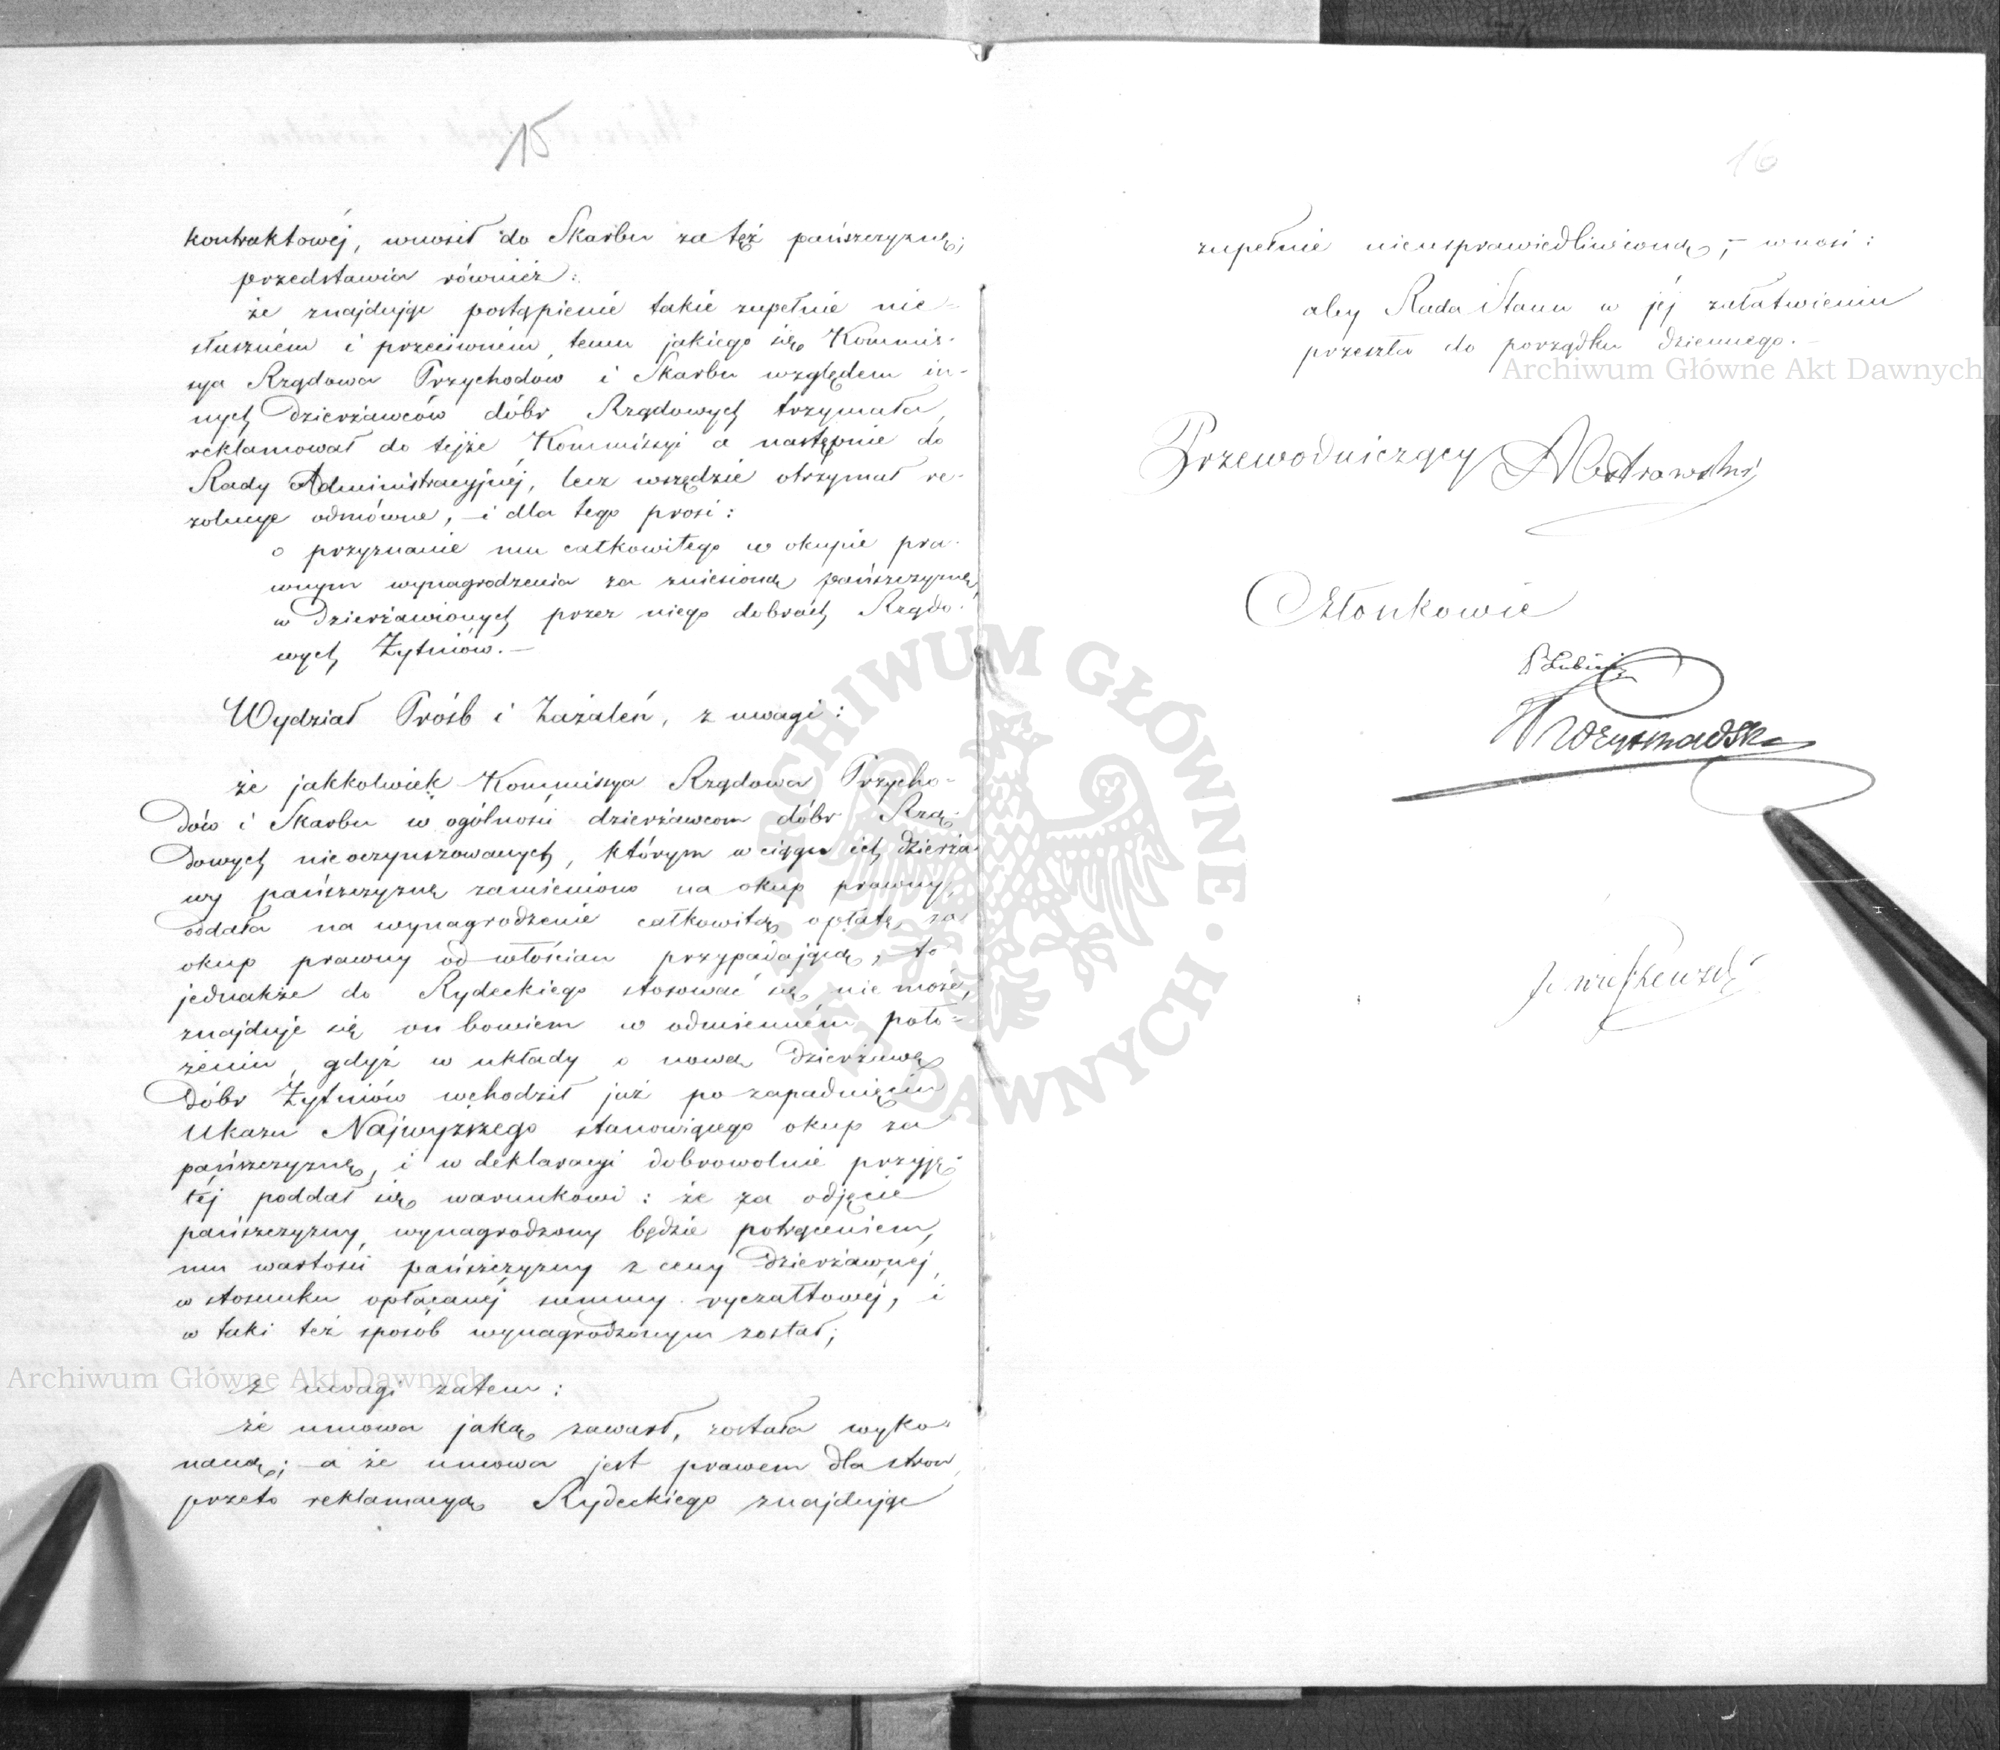 15
kontraktowéj, wnosił do Skarbu za téż pańszczyznę;
przedstawia również:
że znajdując postąpienie takie zupełnie nie-
słuszném i przeciwném temu jakiego się Kommis-
sya Rządowa Przychodów i Skarbu względem in-
nych Dzierżawców dóbr Rządowych trzymała,
reklamował do tejże Kommissyi a następnie do
Rady Administracyjnéj, lecz wszędzie otrzymał re-
zolucye odmówne, – i dla tego prosi:
o przyznanie mu całkowitego w okupie pra-
wnym wynagrodzenia za zniesioną pańszczyznę
w Dzierżawionych przez niego dobrach Rządo-
wych Żytniów. –
Wydział Próśb i Zażaleń, z uwagi:
że jakkolwiek Kommissya Rządowa Przycho-
dów i Skarbu w ogólności dzierżawcom dóbr Rzą-
dowych nieoczynszowanych, którym w ciągu ich dzierża-
wy pańszczyznę zamieniono na okup prawny,
oddała na wynagrodzenie całkowitą opłatę za
okup prawny od włościan przypadającą, to
jednakże do Rydeckiego stosować się nie może,
znajduje się on bowiem w odmienném poło-
żeniu, gdyż w układy o nową Dzierżawę
Dóbr Żytniów wchodził już po zapadnięciu
Ukazu Najwyższego stanowiącego okup za
pańszczyznę, i w deklaracyi dobrowolnie przyję-
téj poddał się warunkowi: że za odjęcie
pańszczyzny wynagrodzony będzie potrąceniem
mu wartości pańszczyzny z ceny Dzierżawnéj,
w stosunku opłacanéj summy ryczałtowéj, i
w taki też sposób wynagrodzonym został;
z uwagi zatem:
że umowa jaką zawarł, została wyko-
naną; – a że umowa jest prawem dla stron
przeto reklamacyą Rydeckiego znajdując
16
zupełnie nieusprawiedliwioną, – wnosi:
aby Rada Stanu w jéj załatwieniu
przeszła do porządku dziennego. –
Przewodniczący AOstrowski
Członkowie
Archiwum Główne Akt Dawnych
Archiwum Główne Akt Dawnych
ARCHIWUM GŁÓWNE AKT DAWNYCH